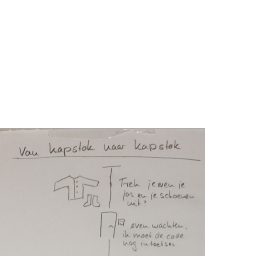 Van kapstok naar kapstok
Trek je even je
jas en je schoenen
uit?
even wachten,
ik moet de code
nog intoetsen